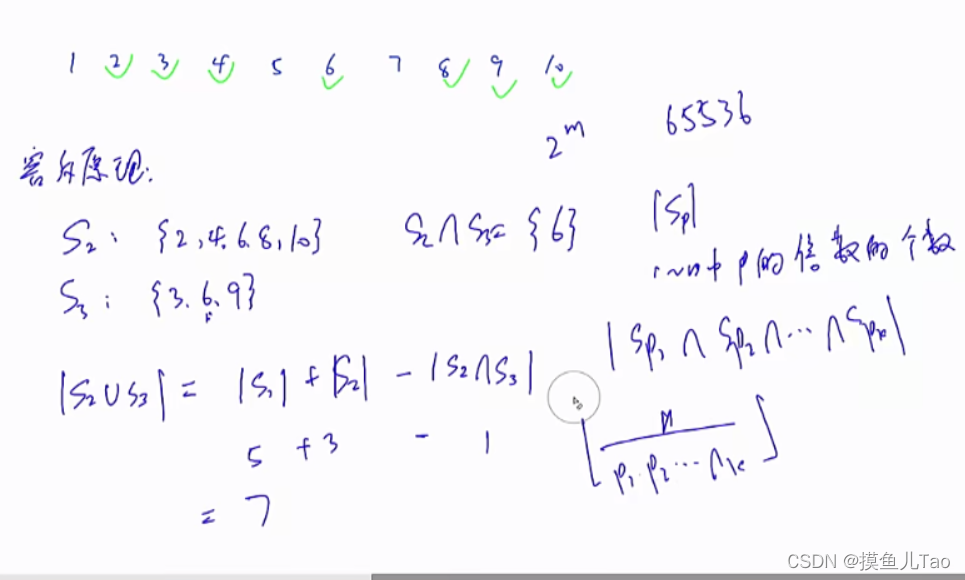 1 2 3 4 5 6 7 8 9 10
2^m 65536
容斥原理:
S₂: {2,4.6.8,10} S₂∩S₃= {6} |Sp|
1~n中p的倍数的个数
S₃: {3.6.9}
|Sp₁ ∩ Sp₂ ∩ ... ∩ Spₖ|
|S₂∪S₃| = |S₁| + |S₂| - |S₂∩S₃|
5 + 3 - 1
⌊n / p₁·p₂...pₖ⌋
= 7
CSDN @摸鱼儿Tao